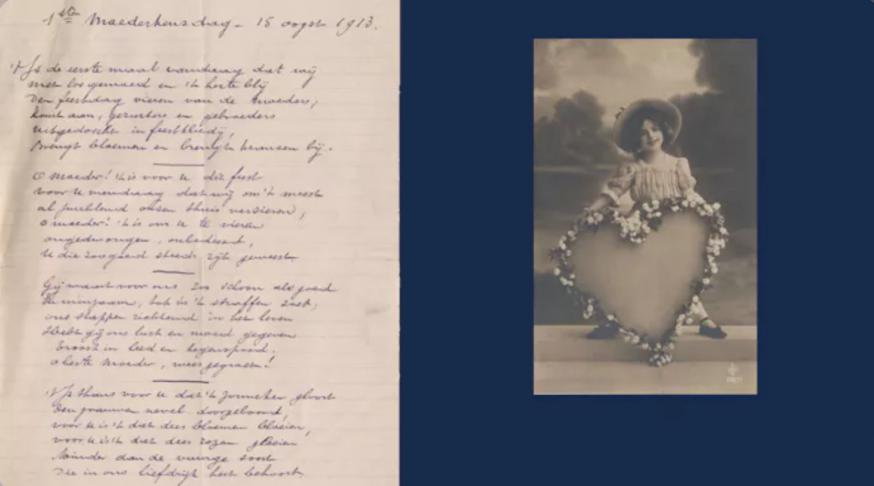 1ste Moederkensdag - 15 oogst 1913.
't Is de eerste maal vandaag dat wij
met loo gemoed en 't herte blij
Den feestdag vieren van de moeders,
komt aan, gezusters en gebroeders
uitgedoscht in feestkleedij,
Brengt bloemen en bij.
O moeder! 't is voor u dit feest
voor u vandaag dat wij om 't meest
al jubelend onzen thuis versieren,
o moeder! 't is om u te vieren
ongedwongen, onbedeesd,
U die zoo goed steeds zijt geweest
Gij waart voor ons zoo schoon als goed
Te minzaam, tot in 't straffen zoet,
ons stappen richtend in het leven
Hebt gij ons lust en moed gegeven
Troost in leed en tegenspoed.
O beste moeder, wees gegroet!
't Is thans voor u dat 't zonneken gloort
Den grauwen nevel doorgeboord,
voor u is 't dat deez bloemen bloeien,
voor u is 't dat deez rozen gloeien
Minder dan de vurige
Die in ons liefdrijk hert behoort.